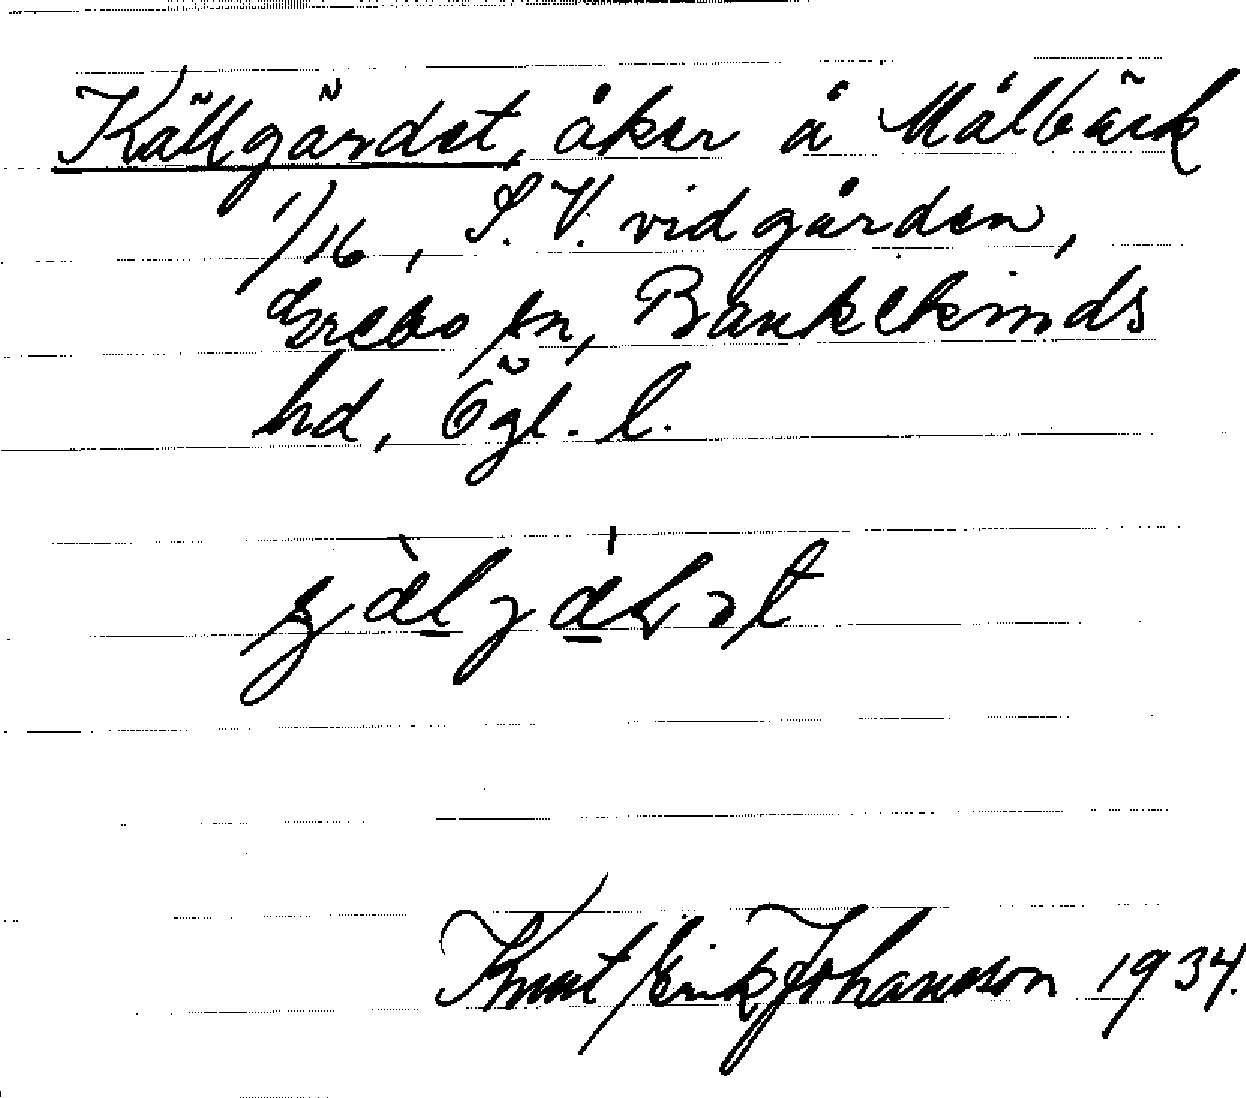 Källgärdet, åker å Målbäck
1/16, S.V. vid gården,
Grebo sn, Bankekinds
hd, Ögl. l.
Knut Erik Johansson 1934.